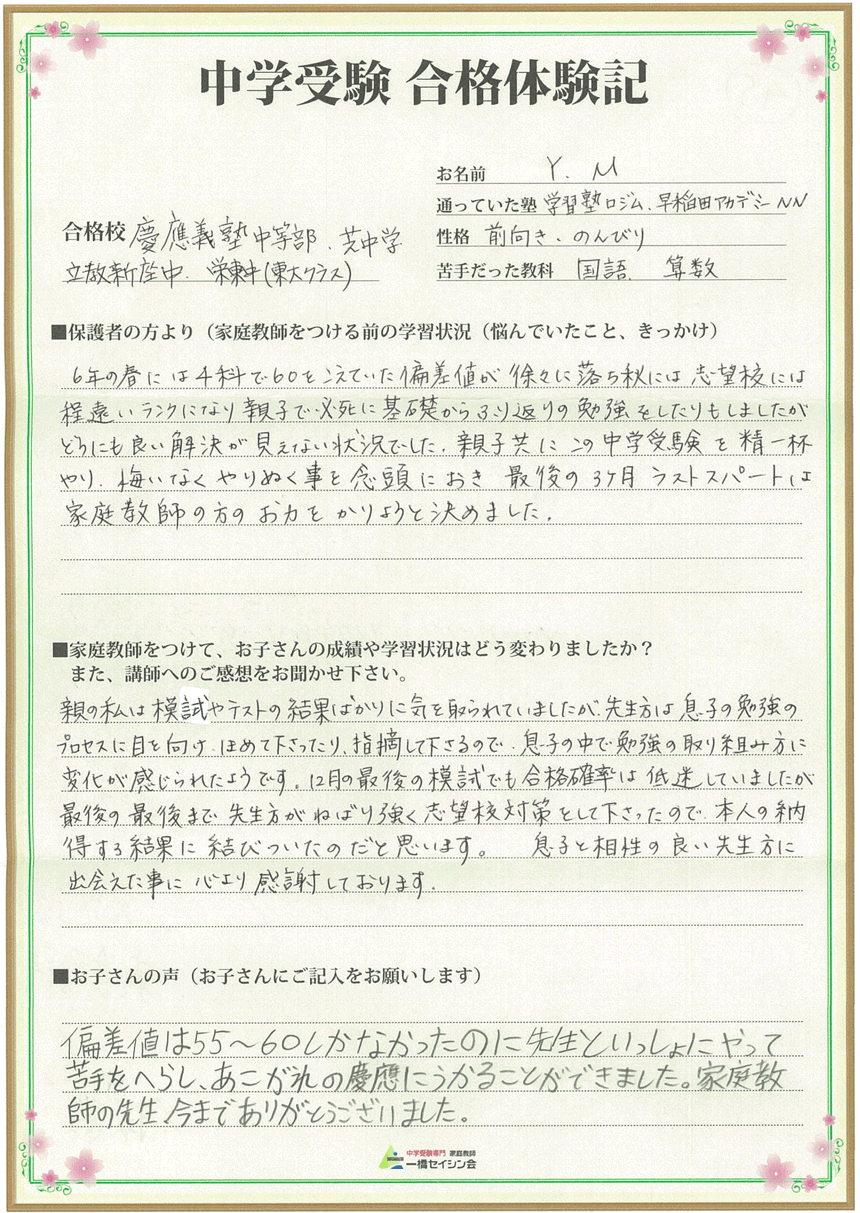 中学受験 合格体験記
お名前 Y. M
通っていた塾 学習塾ロジム、早稲田アカデミーNN
合格校 慶應義塾中等部、芝中学
性格 前向き、のんびり
立教新座中、栄東中(東大クラス)
苦手だった教科 国語、算数
■保護者の方より（家庭教師をつける前の学習状況（悩んでいたこと、きっかけ）
6年の春には4科で60をこえていた偏差値が徐々に落ち秋には志望校には
程遠いランクになり親子で必死に基礎からふり返りの勉強をしたりもしましたが
どうにも良い解決が見えない状況でした。親子共にこの中学受験を精一杯
やり、悔いなくやりぬく事を念頭におき 最後の3ヶ月ラストスパートは
家庭教師の方のお力をかりようと決めました。
■家庭教師をつけて、お子さんの成績や学習状況はどう変わりましたか？
また、講師へのご感想をお聞かせ下さい。
親の私は模試やテストの結果ばかりに気を取られていましたが、先生方は息子の勉強の
プロセスに目を向け、ほめて下さったり、指摘して下さるので、息子の中で勉強の取り組み方に
変化が感じられたようです。12月の最後の模試でも合格確率は低迷していましたが
最後の最後まで先生方がねばり強く志望校対策をして下さったので、本人の納
得する結果に結びついたのだと思います。 息子と相性の良い先生方に
出会えた事に心より感謝しております。
■お子さんの声（お子さんにご記入をお願いします）
偏差値は55～60しかなかったのに先生といっしょにやって
苦手をへらし、あこがれの慶應にうかることができました。家庭教
師の先生、今までありがとうございました。
中学受験専門 家庭教師
一橋セイシン会